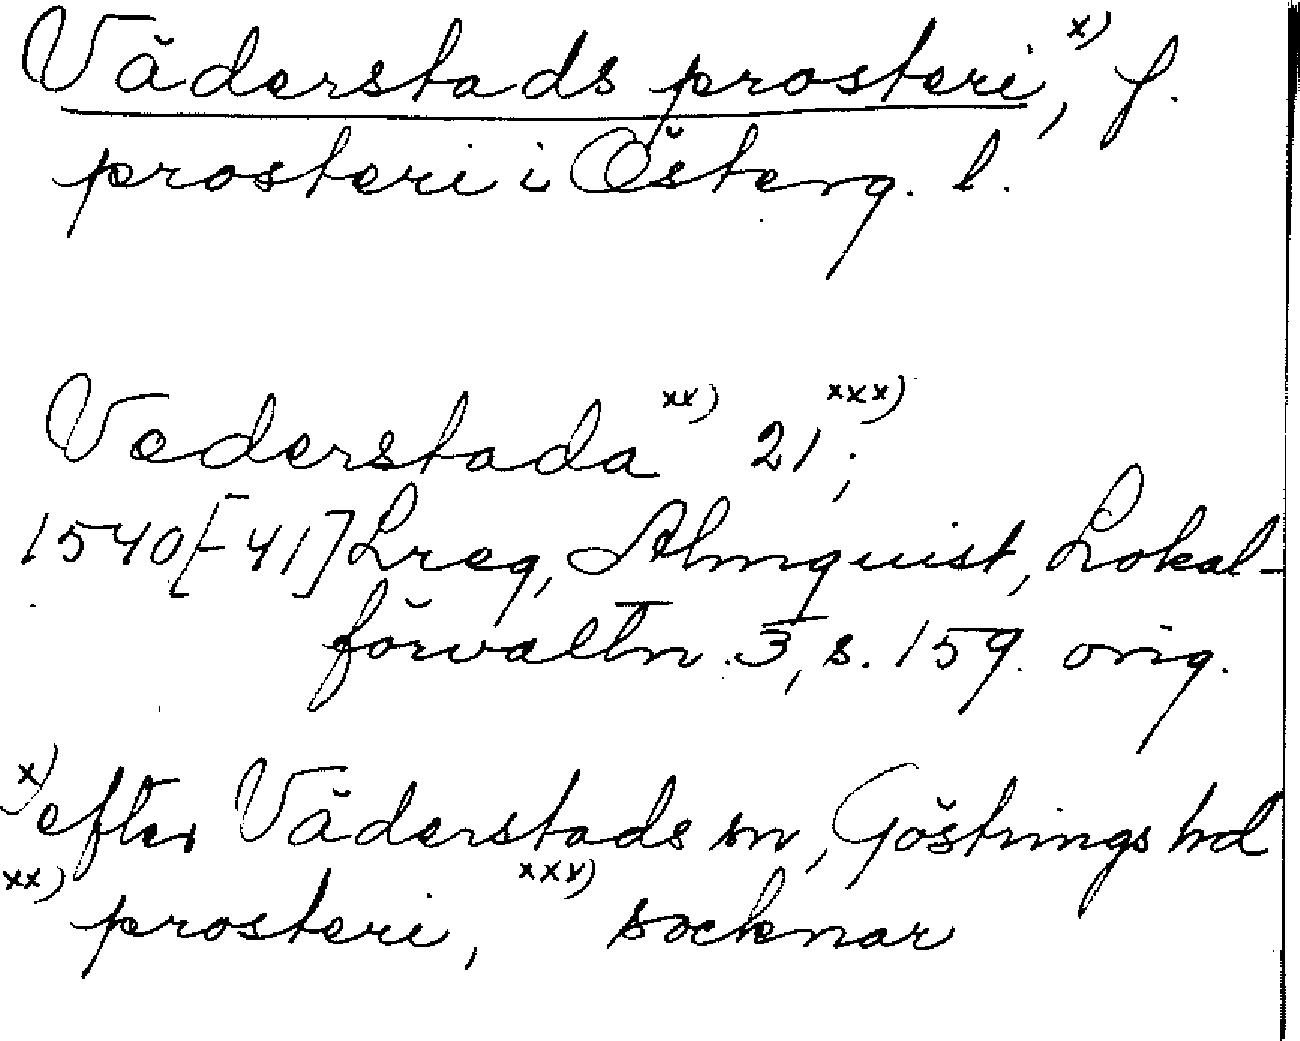 Väderstads prosteri,x) f.
prosteri i Österg. l.
Vederstada xx) 21;xxx)
1540[-41] Lreg, Almquist, Lokal-
förvaltn. 3, s. 159. orig.
x) efter Väderstads sn, Göstrings hd
xx) prosteri, xxx) socknar